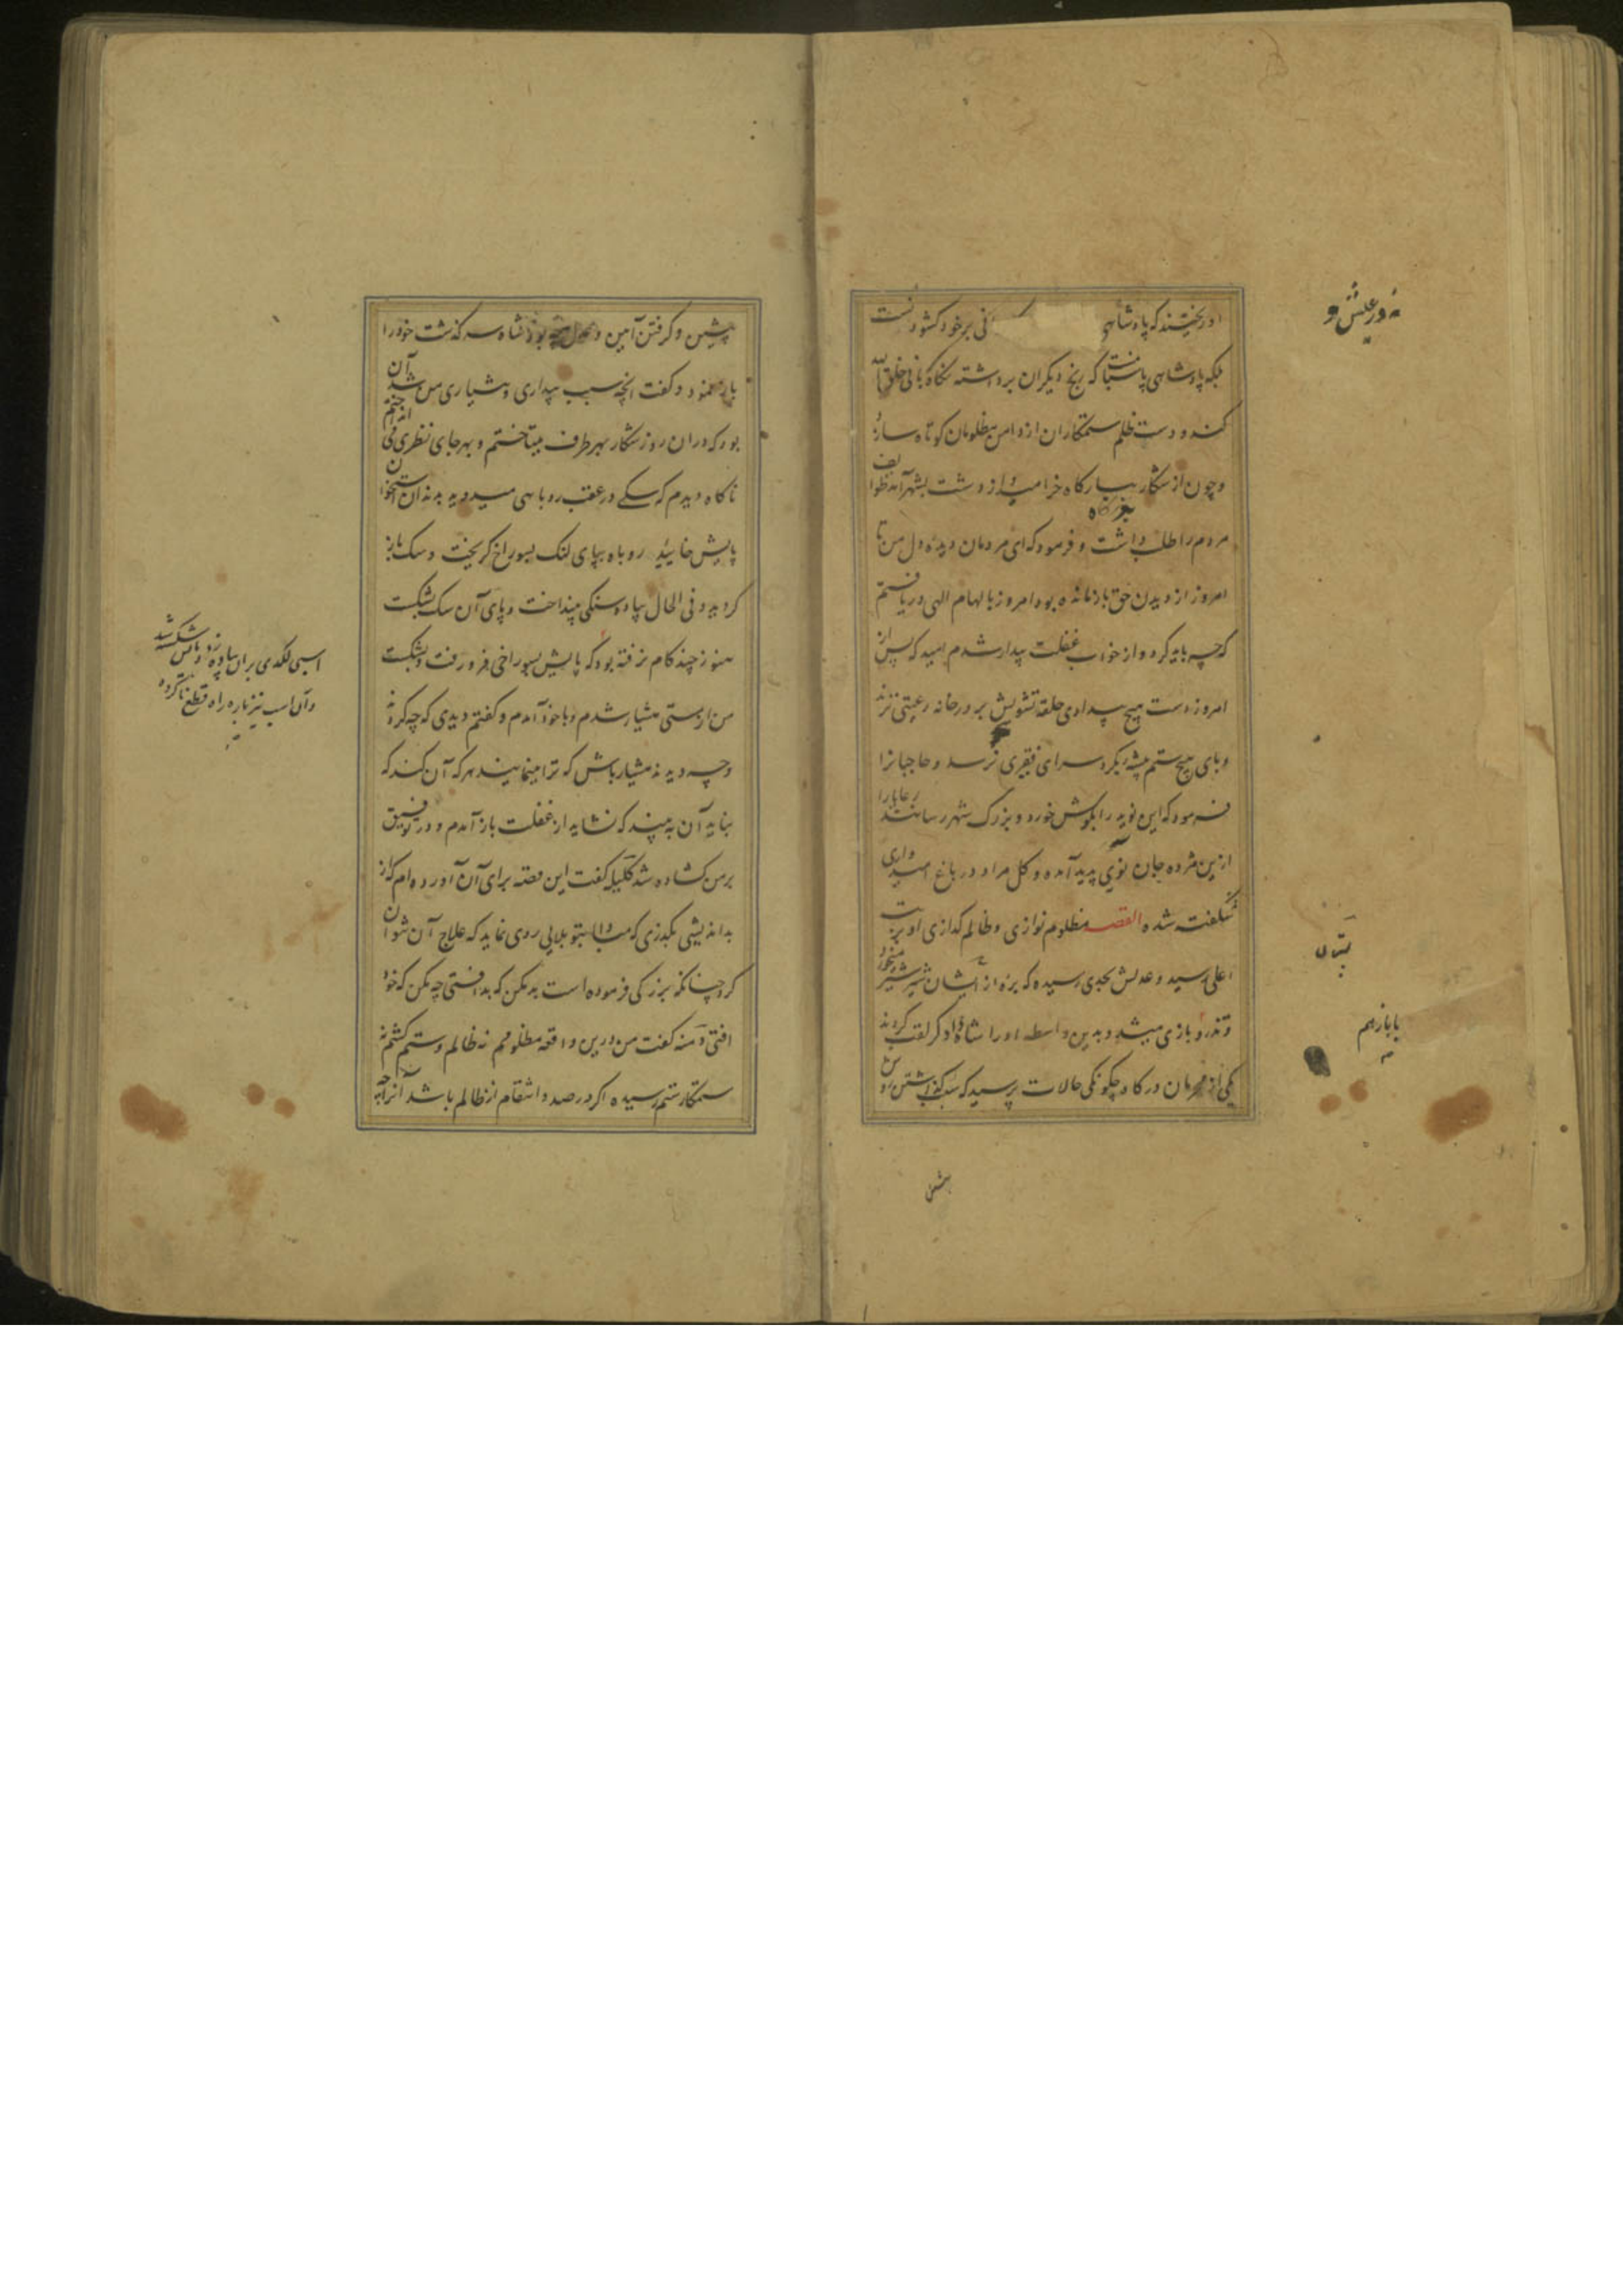 اوریختند که پادشاهی نی برخود کشودنست
نه در عیش و
بلکه پادشاهی پاسبانیست که رنج دیکران برداشته نکاه بانی خلق الله
کنند و دست ظلم ستمکاران از دامن مظلومان کوتاه سازد
و چون از شکار ببارکاه خرامید و از دشت بشهر آمد طوایف
مردم را طلب داشت و فرمود که ای مردمان دیده دل من تا
امروز از دیدن حق بازمانده بود امروز بالهام الهی دریافتم
که چه باید کرد و از خواب غفلت بیدار شدم امید که پس از
امروز دست هیچ بیدادی حلقه تشویش بر در خانه رعیتی نزند
و پای هیچ ستم پیشه بکرد سرای فقیری نرسد و حاجبانرا
فرمود که این نوید را بکوش خورد و بزرک شهر رسانند رعایا را
ازین مژده جان نوی پدید آمده و کل مراد در باغ امیدواری
شکفت شده القصه مظلوم نوازی و ظالم کدازی او بمرتبت
اعلی رسید و عدلش بحدی رسیده که بره از پستان شیر شیر میخورد
پستان
و تذرو با بازی میشد و بدین واسطه او را شاه دادکر لقب کردند
با باز هم
یکی از محرمان درکاه چکونکی حالات پرسید که سبب کذاشتن روش
پشین
پشین و کرفتن آیین چه بود شاه سرکذشت خود را
باز نمود و کفت انچه سبب بیداری و هشیاری من شد آن
بود که در ان روز شکار بهر طرف میتاختم و بهر جای نظری می انداختم
ناکاه دیدم که سکی در عقب روباهی میدوید بدندان استخوان
پایش خایید روباه بپای لنک بسوراخ کریخت و سک باز
کردید و فی الحال پیاده سنکی بینداخت و پای آن سک بشکست
اسبی لکدی بران پیاده زد و پایش شکسته شد
و آن اسب نیز پاره راه قطع ناکرده
هنوز چند کام نرفته بود که پایش بسوراخی فرو رفت و بشکست
من از مستی هشیار شدم و با خود آمدم و کفتم دیدی که چه کردند
و چه دیدند هشیار باش که ترا مینمایند هر که آن کند که
نباید آن بیند که نشاید از غفلت باز آمدم و در توفیق
بر من کشاده شد کلیله کفت این قصه برای آن آورده ام که از
بداندیشی بکذری که مبادا بتو بلایی روی نماید که علاج آن نتوان
کرد چنانکه بزرکی فرموده است بد مکن که بد افتی چه مکن که خود
افتی دمنه کفت من درین واقعه مظلومم نه ظالم و ستم کشم نه
ستمکار ستم رسیده اکر در صدد انتقام از ظالم باشد آنرا چه